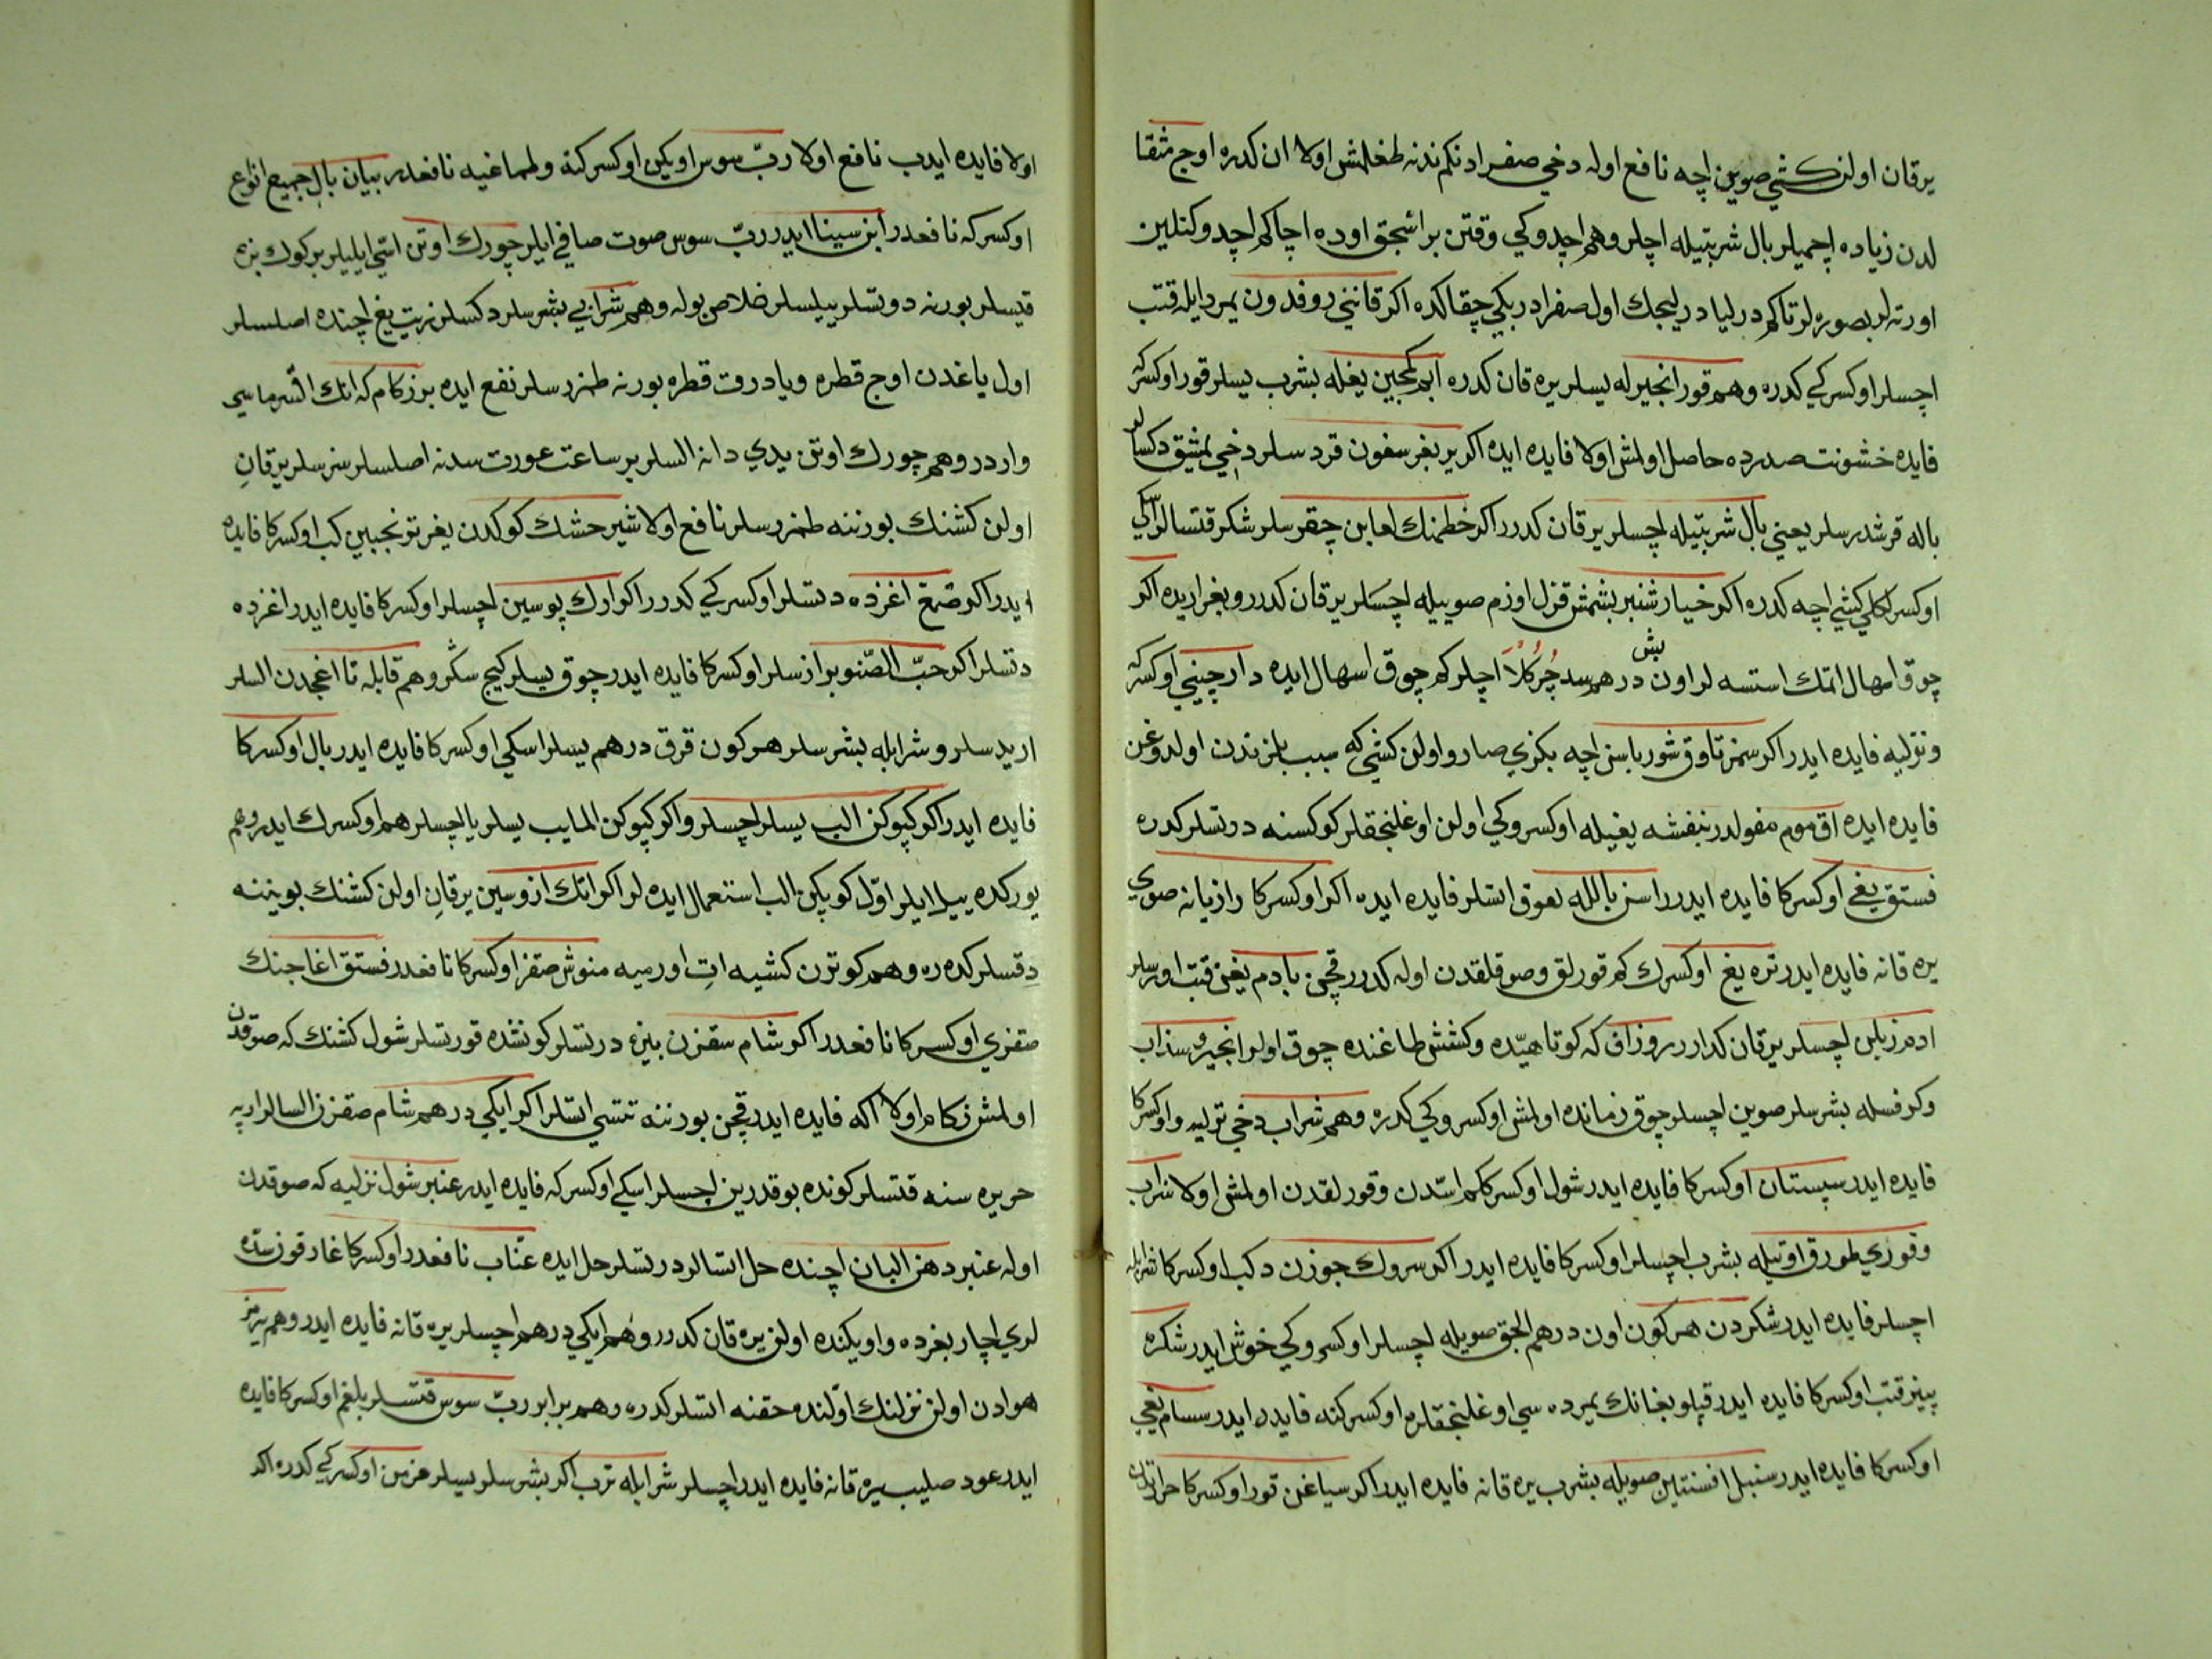 یرقان اولن کشی صوین اچه نافع اوله دخی صفرادنکم ندنه طغلمش اولا ان کدره اوج مثقا
لدن زیاده اچمیلر بال شربتیله اچلر وهم اچدوکی وقتن بر اسجق اوده اچاکم اچدوکنلین
اورته لر بصوره لر تاکم درلیا درلیجك اول صفرا دربکی چقا کده اکر قاننی روفدون یمردایله قتب
اچسلر اوکسرکی کدره وهم قور انجیرله یسلر یره قان کدره یغله بشرب یسلر قور اوکسرکه
فایده خشونت صدرده حاصل اولمش اولا فایده ایده اکر یر بغرسفون قردسلر دخی یمشیق دکسالر
باله قرشدرسلر یعنی بال شربتیله اچسلر یرقان کدرر اکر خطمنك لعابن چقرسلر شکر قتسالر اسکی
اوکسرکلی کشی اچه کدره اکر خیارشنبر بشمش قزل اوزم صوییله اچسلر یرقان کدرر وبغر اریده اکر
چوق اسهال اتمك استسه لر اون بش درهم اچلرکم چوق اسهال ایده دارچینی اوکسرکه
ونزلیه فایده ایدر اکر سمز تاوق شورباسن اچه بکزی صارو اولن کشی که سبب بلزندن اولدوغن
فایده ایده اق موم مفولدر بنفشه یغیله اوکسروکی اولن اوغلنجقلر کوکسنه درتسلر کدره
فستق یغی اوکسرکا فایده ایدر راسن بالله لعوق اتسلر فایده ایده اکر اوکسرکا رازیانه صوی
یره قانه فایده ایدر تره یغ اوکسرك کم قورلق وصوقلقدن اوله کدرر قچن بادم یغن قتب اورسلر
ادمز زبلن اچسلر یرقان کدارر روزاق که کوتاهیده وکشش طاغنده چوق اولر انجیر وسذاب
وکرفسله بشرسلر صوین اچسلر چوق زمانده اولمش اوکسروکی کدره وهم شراب دخی نزلیه واوکسرکا
فایده ایدر سپستان اوکسرکا فایده ایدر شول اوکسرکاکم استدن وقورلقدن اولمش اولا شراب
وقوری طورق اوتیله بشرب اچسلر اوکسرکا فایده ایدر اکر سروك جوزن دکب اوکسرکا شرابله
اچسلر فایده ایدر شکردن هر کون اون درهم الجق صویله اچسلر اوکسروکی خوش ایدر شکره
پینز قتب اوکسرکا فایده ایدر قپلوبغانك یمرده سی اوغلنجقلره اوکسرکنه فایده ایدر سسام یغی
اوکسرکا فایده ایدر سنبل افسنتین صویله بشرب یره قانه فایده ایدر اکر سیاغن قور اوکسرکا حراتدن
اولا فایده ایدب نافع اولا ربّ سوس اویکن اوکسرکنه ولماغیه نافعدر بیان بال جمیع انواع
اوکسرکه نافعدر ابن سینا ایدر ربّ سوس صوت صافی ایلر چورك اوتن استی ایلیلر بر کوك بزه
قیسلر بورنه دوتسلر ییلسلر خلاص بوله وهم شرابی بشرسلر دکسلر زیت یغ اچنده اصلسلر
اول یاغدن اوج قطره ویا درت قطره بورنه طمزرسلر نفع ایده بر زکام که انك اقسرماسی
واردر وهم چورك اوتن یدی دانه السلر بر ساعت عورت سدنه اصلسلر سزسلر یرقان
اولن کشنك بورننه طمزرسلر نافع اولا شیرحشك کوکدن یغر ترنجبین کب اوکسرکا فایده
ایدر اکر صمغ اغزده دتسلر اوکسرکی کدرر اکر ارك پوسین اچسلر اوکسرکا فایده ایدر اغزده
دتسلر اکر حبّ الصّنوبر ازسلر اوکسرکا فایده ایدر چوق یسلر کیج سکر وهم قابله تا اغجدن السلر
اریدسلر وشرابله بشرسلر هر کون قرق درهم یسلر اسکی اوکسرکا فایده ایدر بال اوکسرکا
فایده ایدر اکر کپوکن الب یسلر اچسلر واکر کپوکن المایب یسلر یا اچسلر هم اوکسرك ایدر وهم
یورکده ییلر ایلر اوّل کوپکن الب استعمال ایده لر اکر انك ازوسین یرقان اولن کشنك بویننه
دقسلر کده ره وهم کوترن کشیه ات اورمیه منوش صقز اوکسرکا نافعدر فستق اغاجنك
صقزی اوکسرکا نافعدر اکر شام سقزن بیزه درتسلر کونشده قورتسلر شول کشنك که صوقدن
اولمش زکام اولا اکه فایده ایدر قچن بورننه تتسی اتسلر اکر ایکی درهم شام صقزن السالر اربه
حریره سنه قتسلر کونده بو قدرین اچسلر اسکی اوکسرکه فایده ایدر عنبر شول نزلیه که صوقدن
اوله عنبر دهن البان اچنده حل اتسالر درتسلر حل ایده عنّاب نافعدر اوکسرکا غارقون سده
لری اچار بغرده واویکنده اولن یره قان کدرر وهم ایکی درهم اچسلر یره قانه فایده ایدر وهم
هوادن اولن نزلنك اوّلنده حقنه اتسلر کدره وهم برابر ربّ سوس قتسلر بلغم اوکسرکا فایده
ایدر عود صلیب یره قانه فایده ایدر اچسلر شرابله ترب اکر بشرسلر یسلر مزمن اوکسرکی کدره اکر